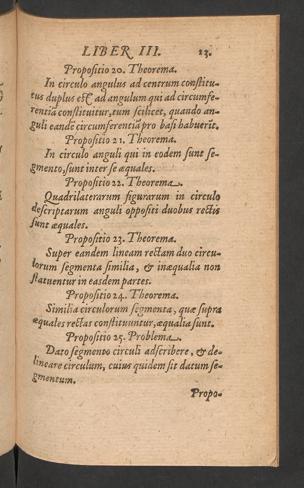 LIBER III. 23.
Propositio 20. Theorema.
In circulo angulus ad centrum constitu-
tus duplus est ad angulum qui ad circumfe-
rentiā constituitur, tum scilicet, quando an-
guli eandē circumferentiā pro basi habuerit.
Propositio 21. Theorema.
In circulo anguli qui in eodem sunt se-
gmento, sunt inter se æquales.
Propositio 22. Theorema.
Quadrilaterarum figurarum in circulo
descriptarum anguli oppositi duobus rectis
sunt æquales.
Propositio 23. Theorema.
Super eandem lineam rectam duo circu-
lorum segmenta similia, & inæqualia non
statuentur in easdem partes.
Propositio 24. Theorema.
Similia circulorum segmenta, quæ supra
æquales rectas constituuntur, æqualia sunt.
Propositio 25. Problema.
Dato segmento circuli adscribere, & de-
lineare circulum, cuius quidem sit datum se-
gmentum.
Propo-